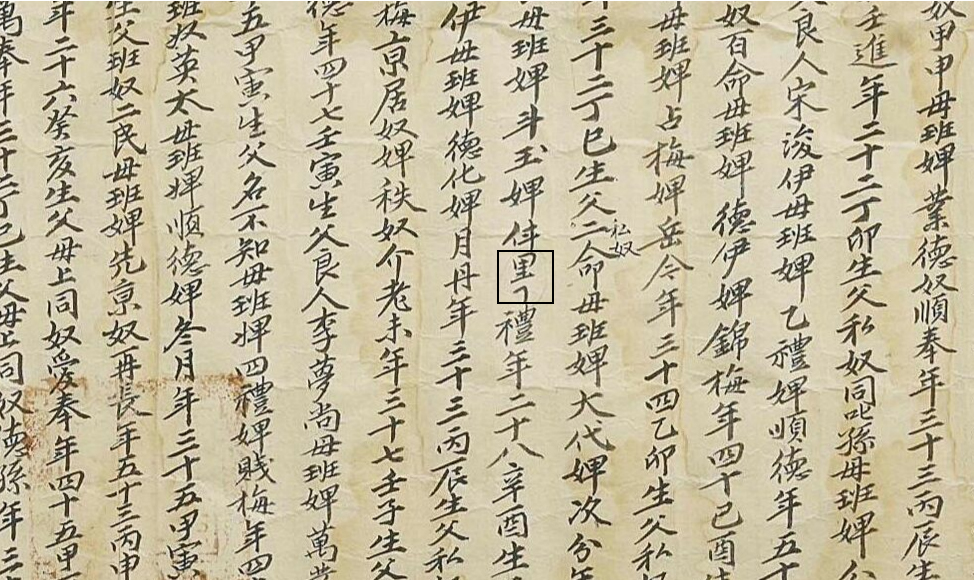 奴甲申母班婢業德奴順奉年三十三丙辰生
壬進年二十二丁卯生父私奴同吡孫母班婢
良人宋浚伊母班婢乙禮婢順德年五十
奴百命母班婢德伊婢錦梅年四十己酉生
母班婢占梅婢岳今年三十四乙卯生父私
年三十二丁巳生父私奴二命母班婢大代婢次分年
母班婢斗玉婢件里了禮年二十八辛酉生
伊母班婢德化婢月丹年三十三丙辰生父私
梅京居奴婢秩奴介老未年三十七壬子生父
德年四十七壬寅生父良人李夢尚母班婢萬
五甲寅生父名不知母班婢四禮婢賤梅年四
班奴英太母班婢順德婢冬月年三十五甲寅
生父班奴二民母班婢先京奴再長年五十三丙申
年二十六癸亥生父母上同奴愛奉年四十五甲
萬奉年三十二丁巳生父母上同奴德孫年三